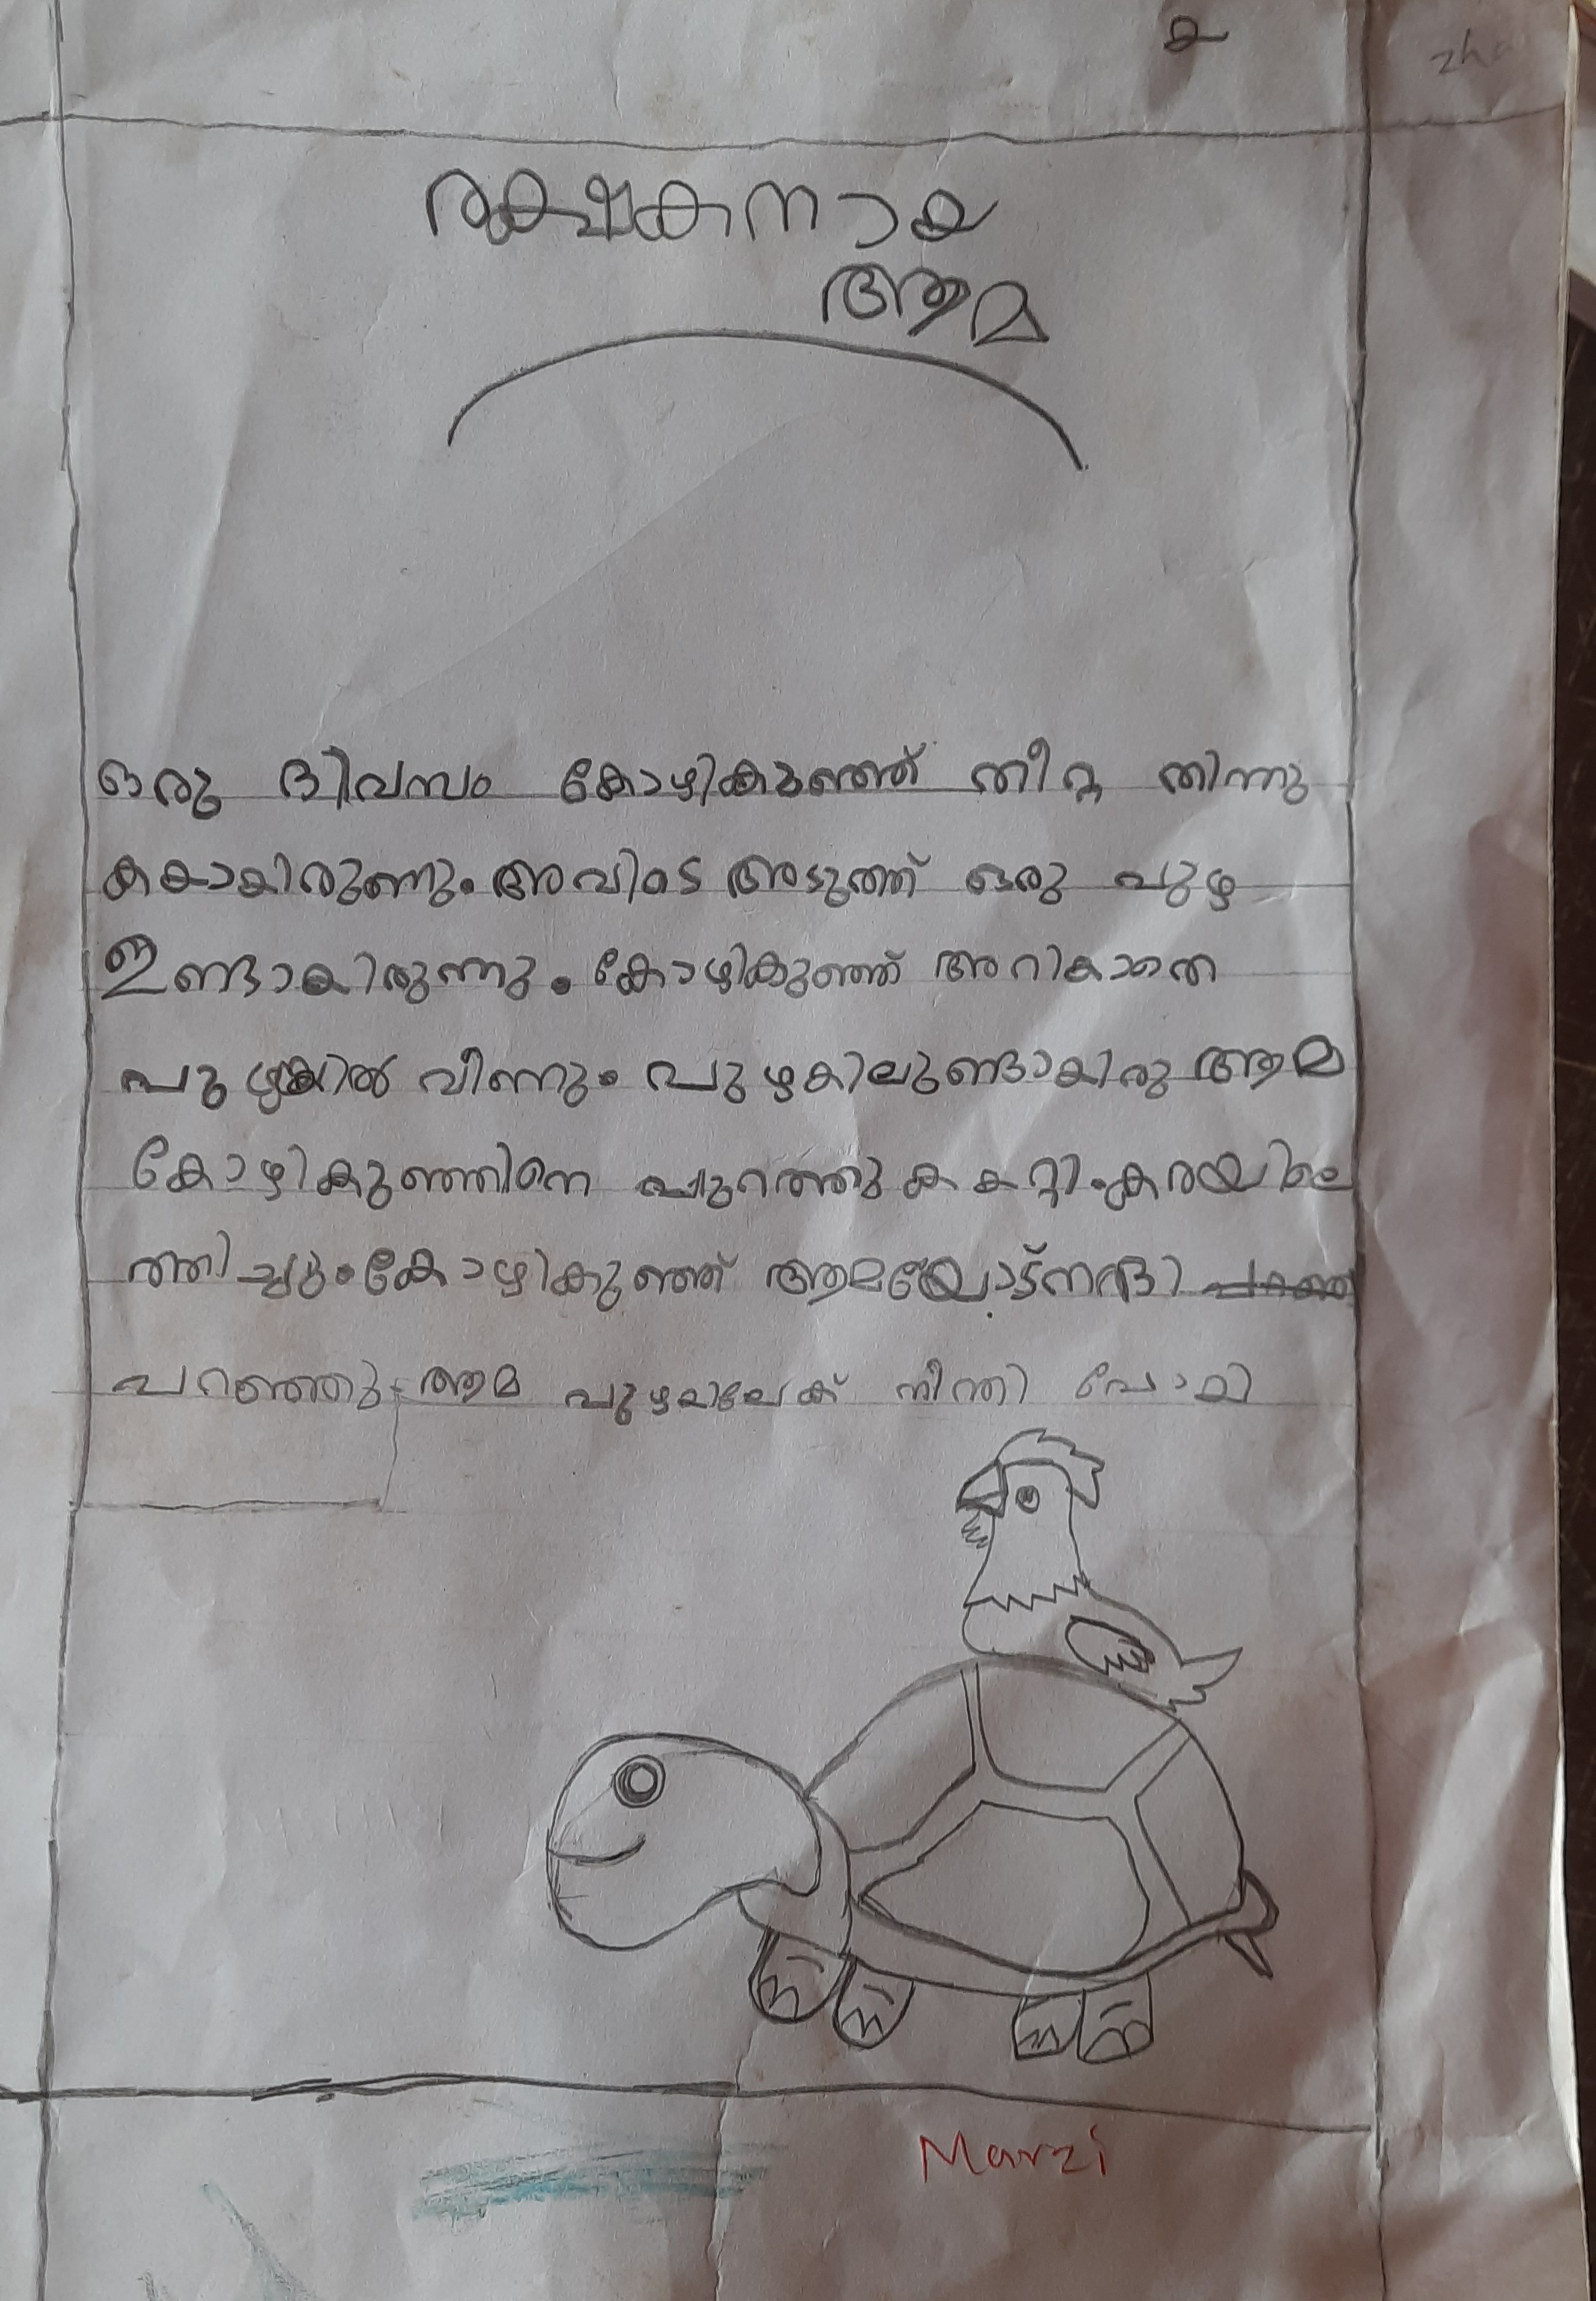 ൨
zha
രക്ഷകനായ
ആമ
ഒരു ദിവസം കോഴികുഞ്ഞ് തീറ്റ തിന്നു
കകായിരുണും. അവിടെ അടുത്ത് ഒരു പുഴ
ഇണ്ടായിരുന്നു. കോഴികുഞ്ഞ് അറികാതെ
പുഴയിൽ വീണും. പുഴകിലുണ്ടായിരു ആമ
കോഴികുഞ്ഞിനെ പുറത്തു കകറ്റി. കരയിലെ
ത്തിച്ചു. കോഴികുഞ്ഞ് ആമയോട് നന്ദി
പറഞ്ഞു. ആമ പുഴയിലേക് നീന്തി പോയി
Marzi